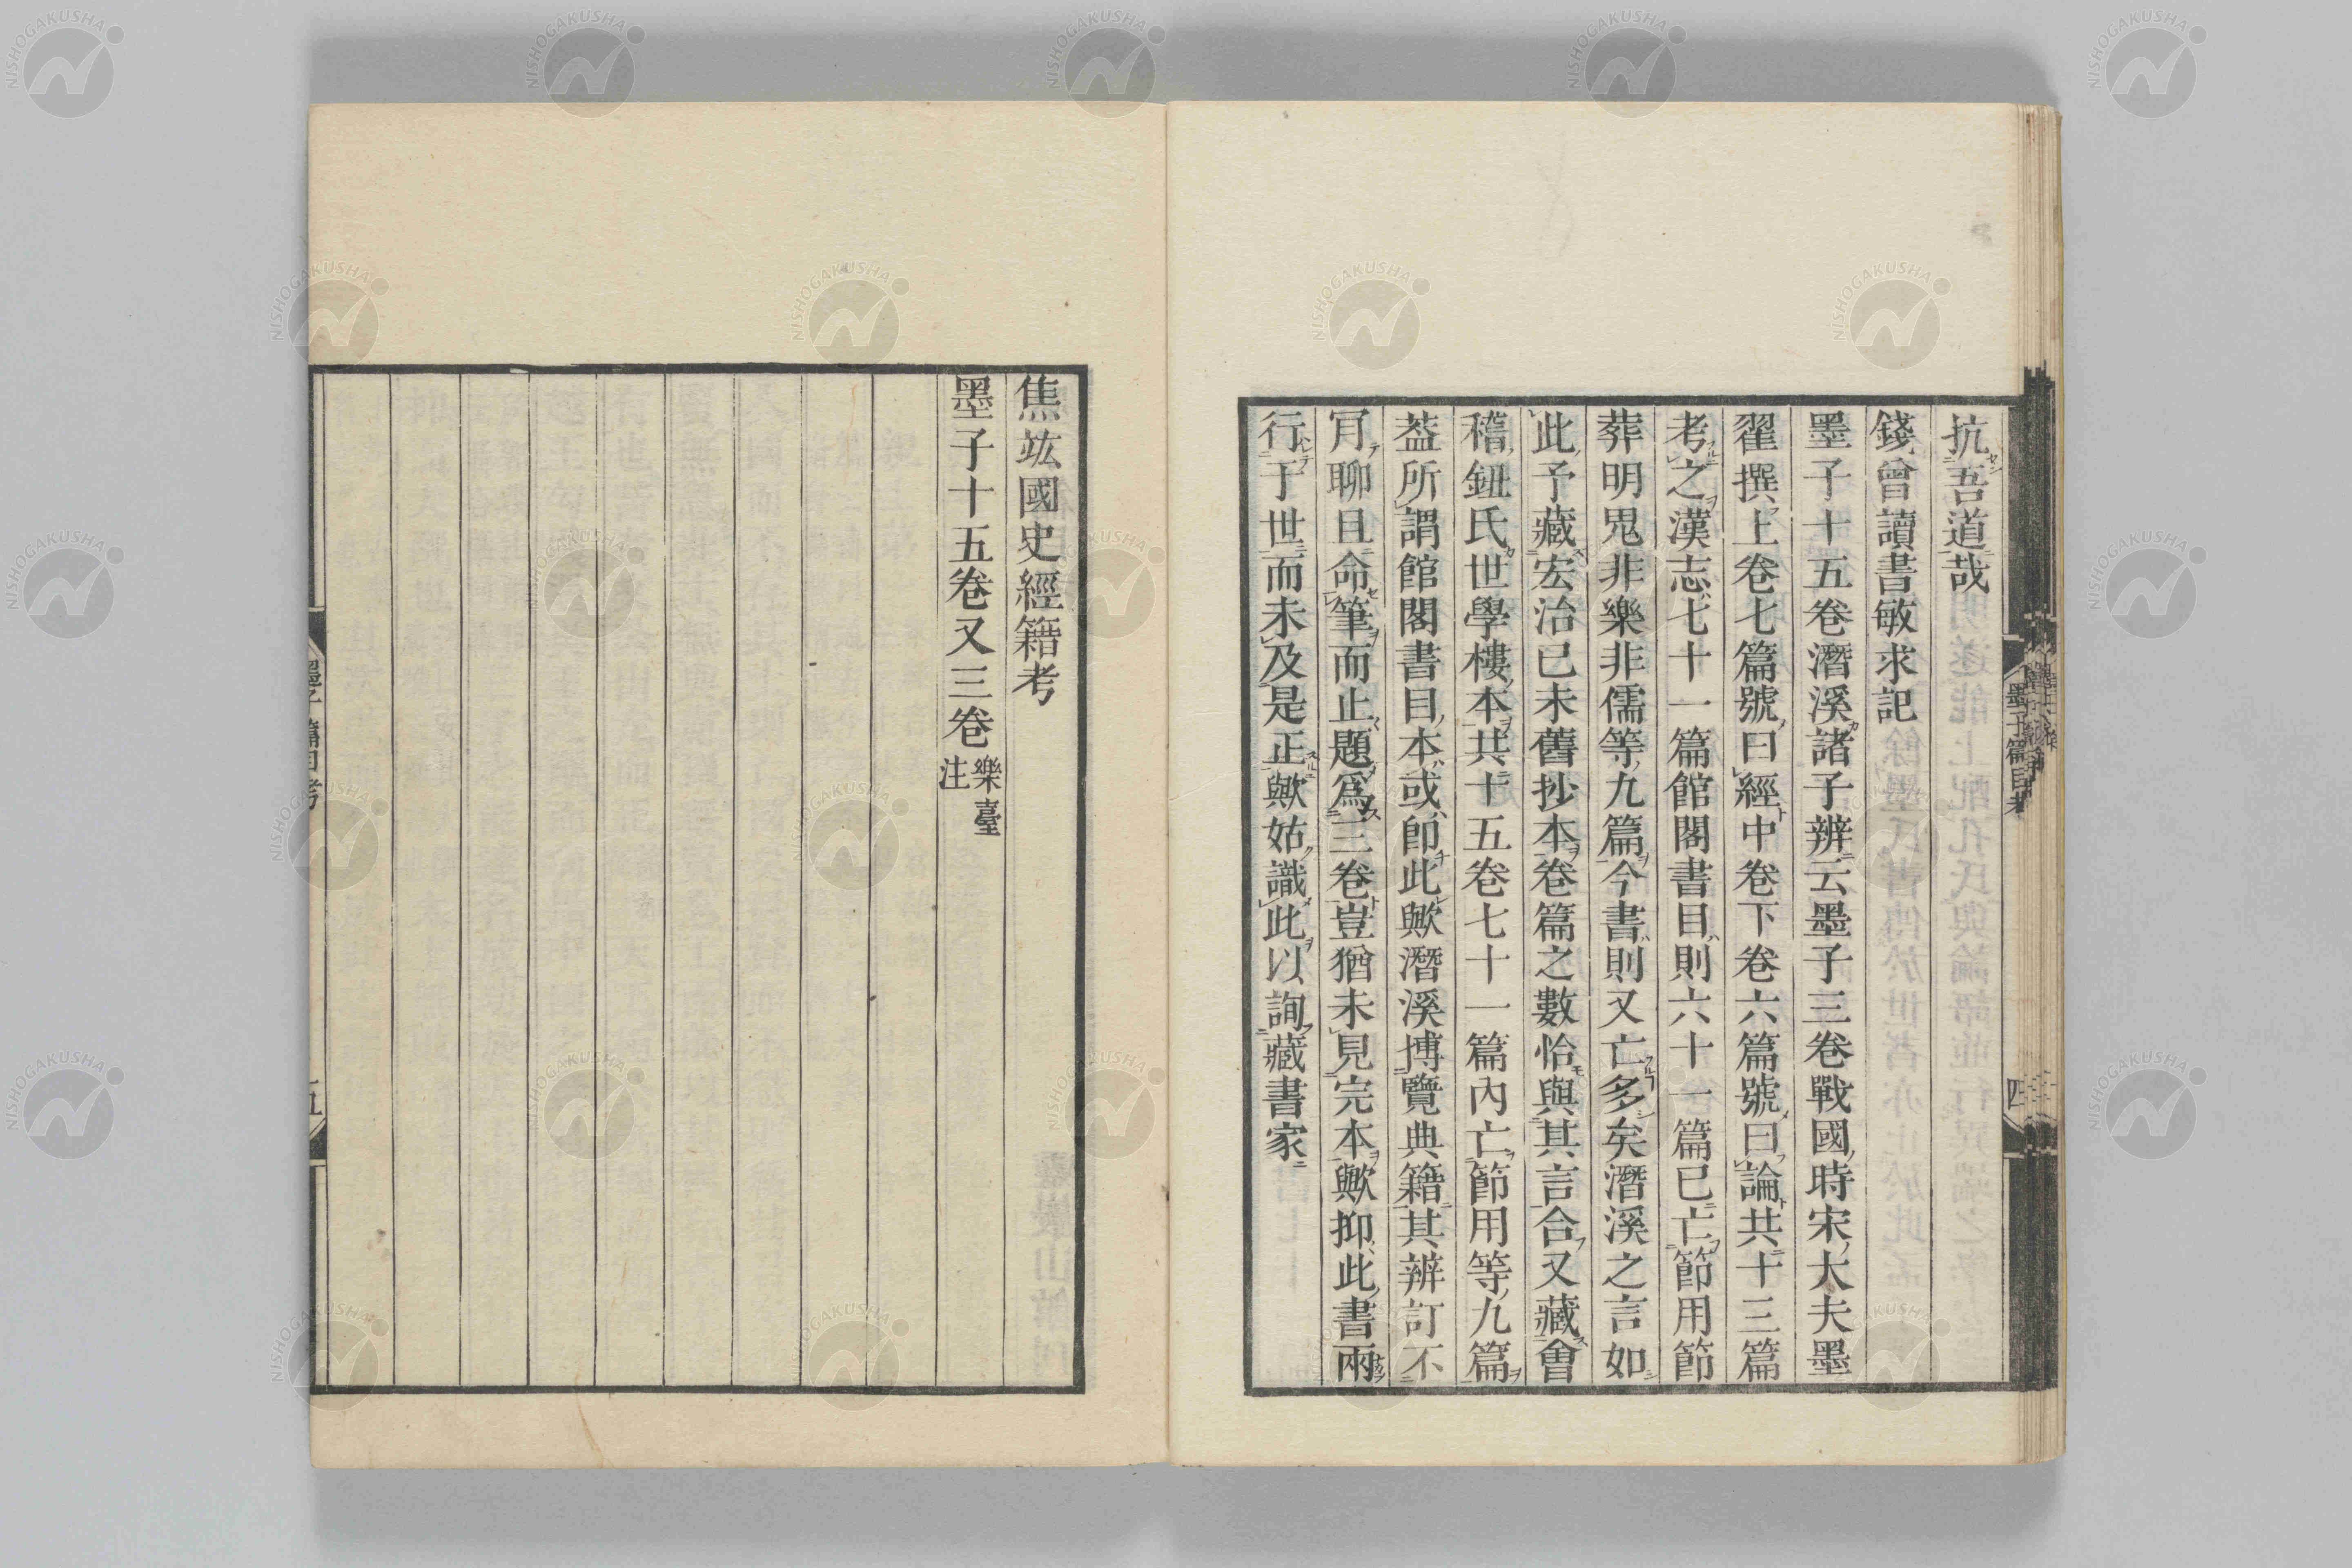 抗吾道哉
錢曾讀書敏求記
墨子十五卷潛溪諸子辨云墨子三卷戰國時宋大夫墨
翟撰上卷七篇號曰經中卷下卷六篇號曰論共十三篇
考之漢志七十一篇館閣書目則六十一篇已亡節用節
葬明鬼非樂非儒等九篇今書則又亡多矣潛溪之言如
此予藏宏治己未舊抄本卷篇之數恰與其言合又藏會
稽鈕氏世學樓本共十五卷七十一篇內亡節用等九篇
葢所謂館閣書目本或即此歟潛溪博覽典籍其辨訂不
肎聊且命筆而止題爲三卷豈猶未見完本歟抑此書兩
行于世而未及是正歟姑識此以詢藏書家
墨子篇目考
四
焦竑國史經籍考
墨子十五卷又三卷樂臺注
墨子 篇目考
五
NISHOGAKUSHA